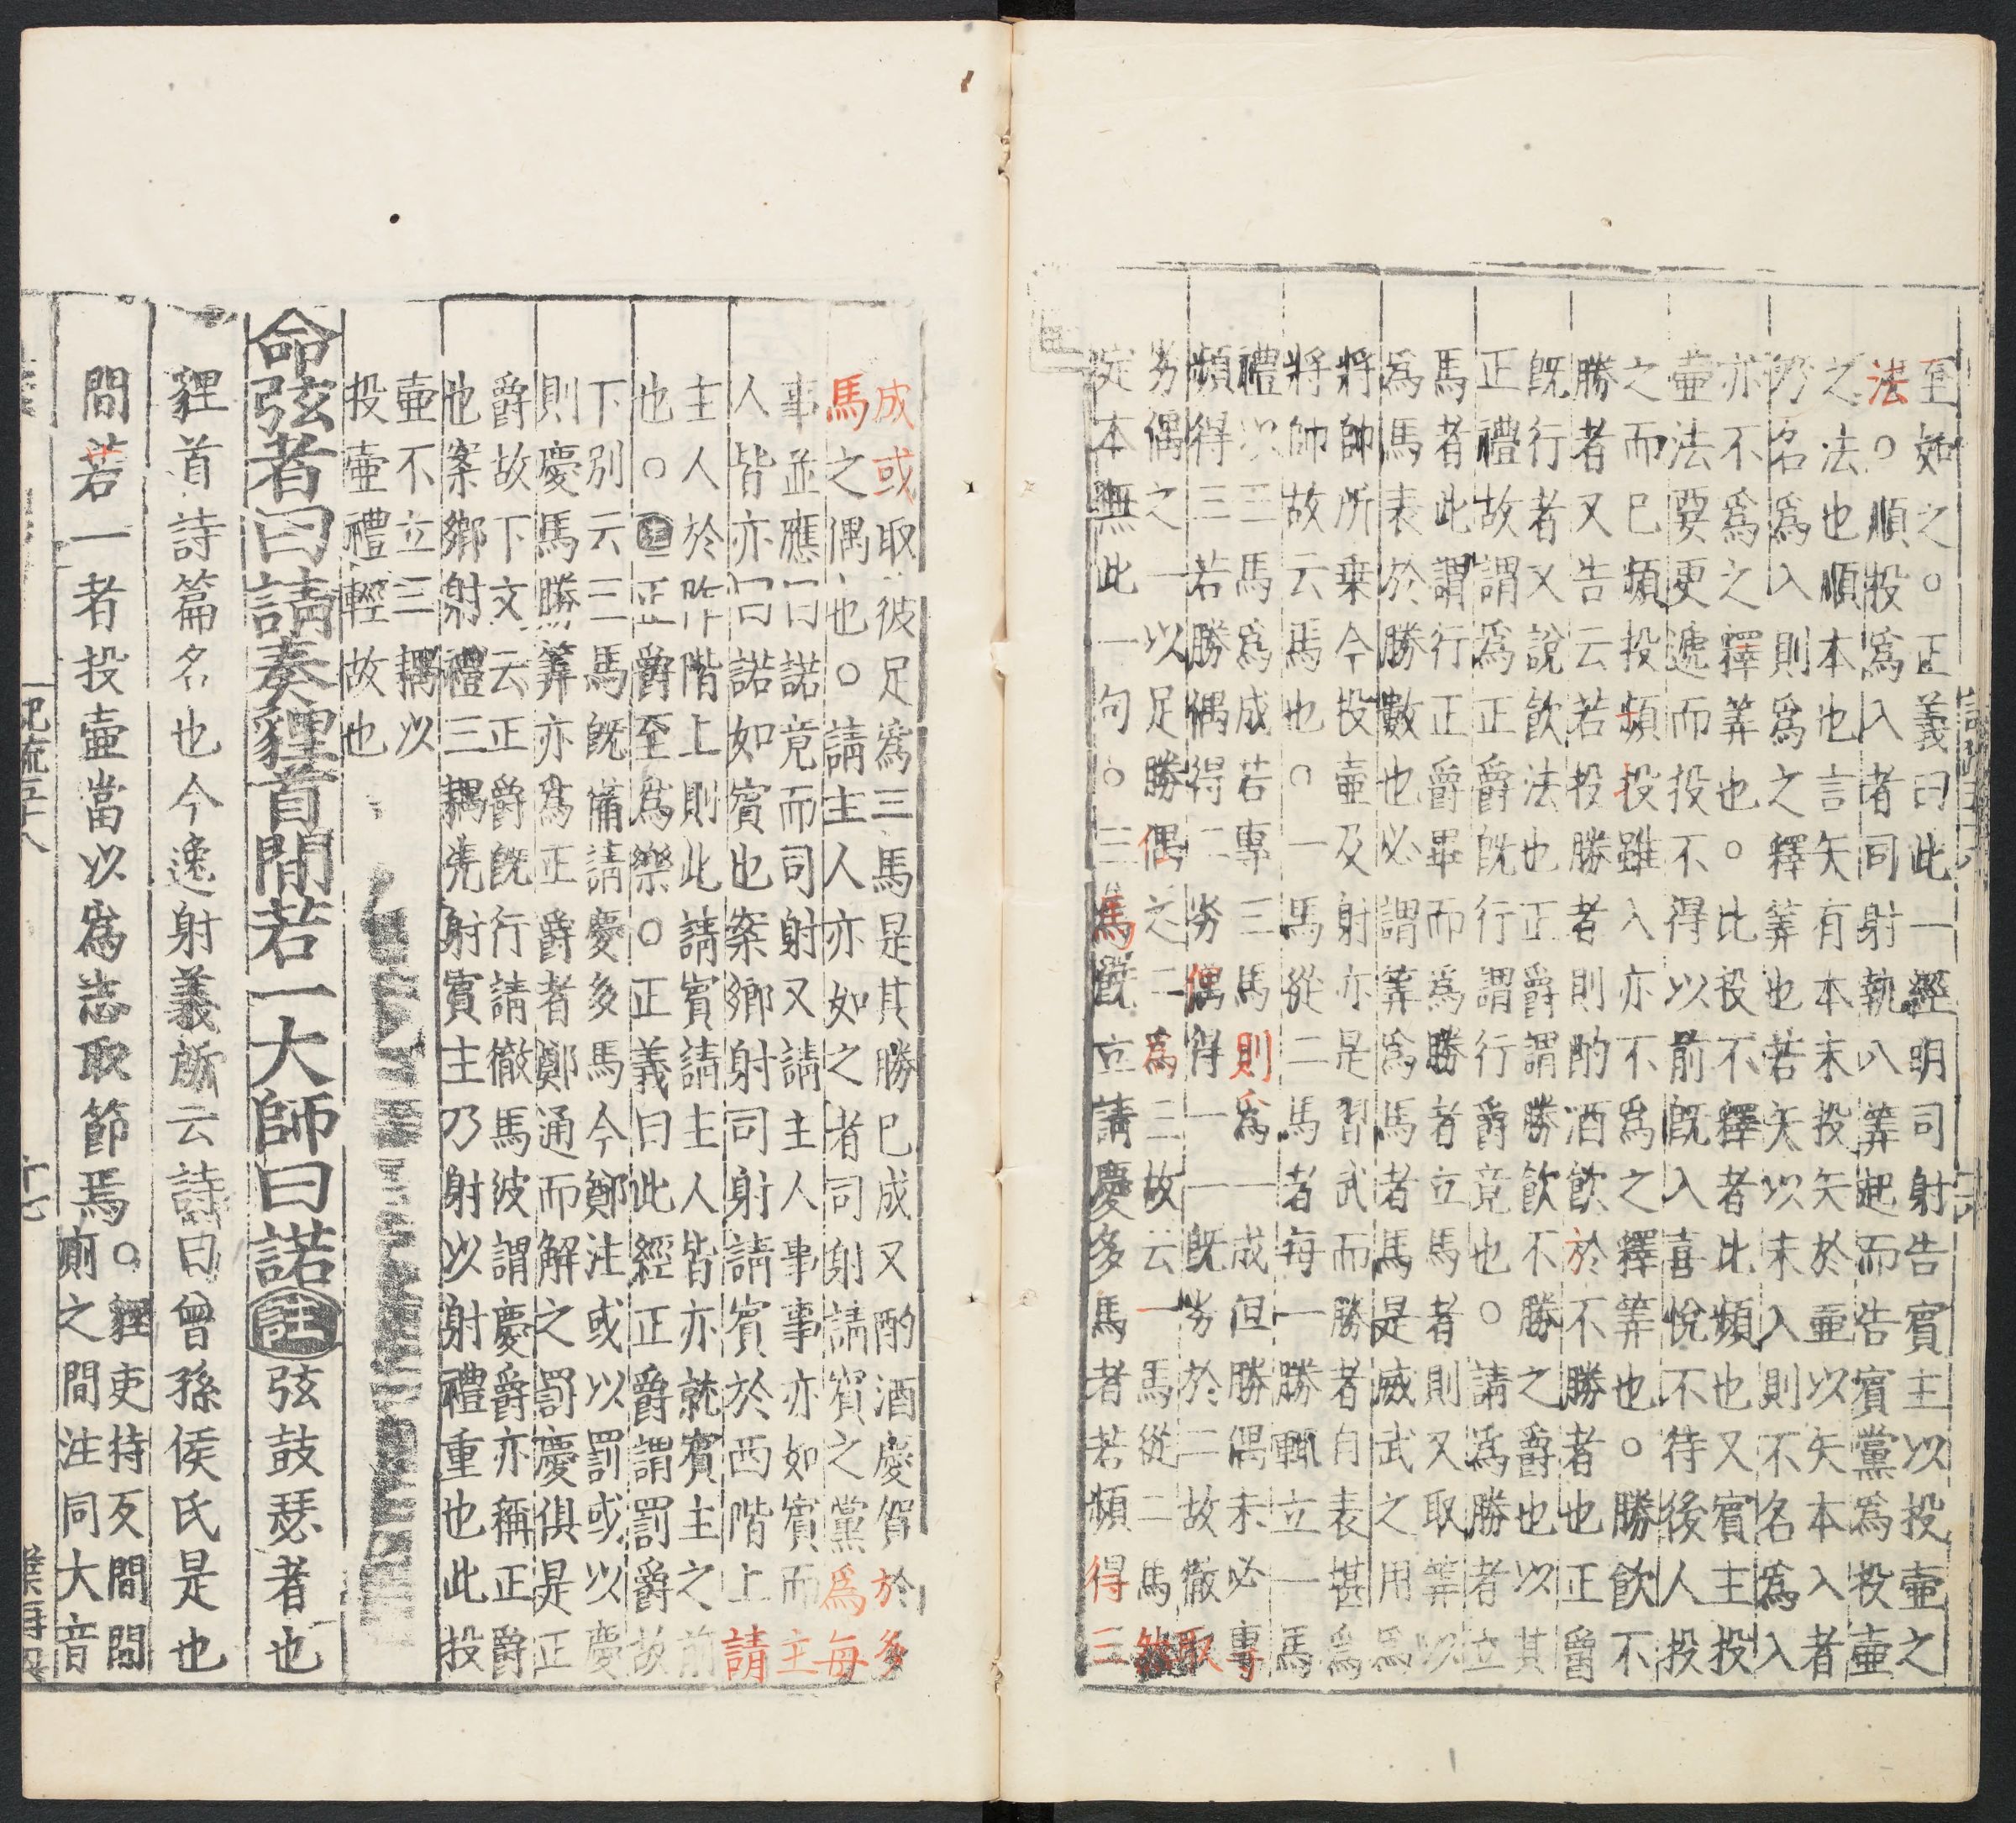 至如之○正義曰此一經明司射告賓主以投壺之
法○順投爲入者司射執八筭起而告賓黨爲投壺
之法也順本也言矢有本末投矢於壺以矢本入者
乃名爲入則爲之釋筭也若矢以末入則不名爲入
亦不爲之釋筭也○比投不釋者比頻也又賓主投
壷法要更遞而投不得以前旣入喜悅不待後人投
之而巳頻投頻投雖入亦不爲之釋筭也○勝飲不
勝者又告云若投勝者則酌酒飲於不勝者也正爵
旣行者又說飲法也正爵謂勝飲不勝之爵也以其
正禮故謂爲正爵旣行謂行爵竟也○請爲勝者立
馬者此謂行正爵畢而爲勝者立馬者則又取筭以
爲馬表於勝數也必謂筭爲馬者馬是威武之用爲
將帥所乗今投壷及射亦是習武而勝者自表甚爲
將帥故云馬也○一馬從二馬者每一勝輒立一馬
禮以三馬爲成若專三馬則爲一成但勝偶未必專
頻得三若勝偶得二劣偶得一一旣劣於二故徹取
劣偶之一以足勝偶之二爲三故云一馬從二馬
定本無此一句○三馬旣立請慶多馬者若頻得三
成或取彼足爲三馬是其勝巳成又酌酒慶賀於多
馬之偶也○請主人亦如之者司射請賓之黨爲每
事並應曰諾竟而司射又請主人事事亦如賓而主
人皆亦曰諾如賓也案鄉射司射請賓於西階上請
主人於阼階上則此請賓請主人皆亦就賓主之前
也○註正爵至爲樂○正義曰此經正爵謂罰爵故
下别云三馬旣備請慶多馬今鄭注或以罰或以慶
則慶馬勝筭亦爲正爵者鄭通而解之罰慶俱是正
爵故下文云正爵旣行請徹馬彼謂慶爵亦稱正爵
也案鄉射禮三耦先射賓主乃射以射禮重也此投
壷不立三耦以
投壷禮輕故也
命弦者曰請奏貍首間若一大師曰諾註弦鼓瑟者也
貍首詩篇名也今逸射義所云詩曰曾孫侯氏是也
間若一者投壷當以爲志取節焉○貍吏持反間間
廁之間注同大音